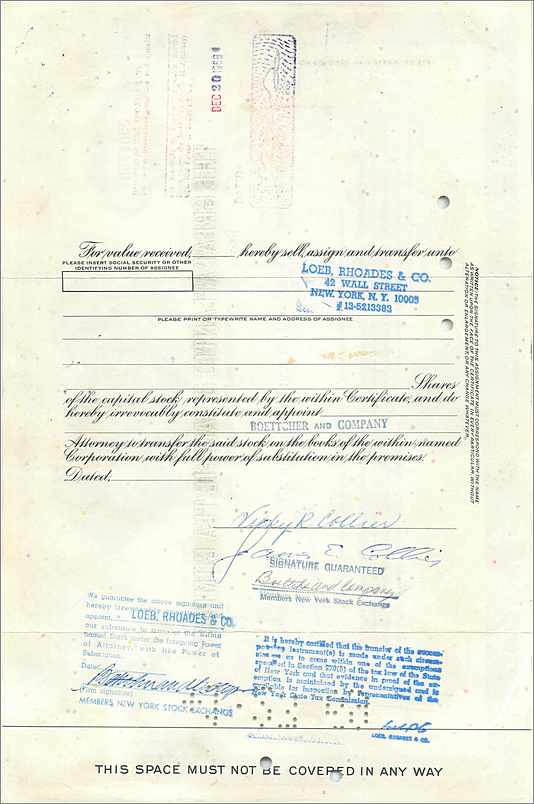 DEC 20 196
For value received, hereby sell, assign and transfer unto
PLEASE INSERT SOCIAL SECURITY OR OTHER
IDENTIFYING NUMBER OF ASSIGNEE
LOEB, RHOADES & CO.
42 WALL STREET
NEW YORK, N. Y. 10005
13-5213383
PLEASE PRINT OR TYPEWRITE NAME AND ADDRESS OF ASSIGNEE
Shares
of the capital stock represented by the within Certificate, and do
hereby irrevocably constitute and appoint
BOETTCHER AND COMPANY
Attorney to transfer the said stock in the books of the within named
Corporation with full power of substitution in the premises.
Dated,
NOTICE: THE SIGNATURE TO THIS ASSIGNMENT MUST CORRESPOND WITH THE NAME
AS WRITTEN UPON THE FACE OF THE CERTIFICATE IN EVERY PARTICULAR, WITHOUT
ALTERATION OR ENLARGEMENT OR ANY CHANGE WHATEVER.
R Collier
James E. Collier
SIGNATURE GUARANTEED
Boettcher and Company
Members New York Stock Exchange
We guarantee the above signature and
hereby
appoint LOEB, RHOADES & CO.
our substitute to transfer the within
named stock under the foregoing Power
of Attorney, with like Power of
Substitution.
Dated
Firm signature
MEMBERS NEW YORK STOCK EXCHANGE
It is hereby certified that the transfer of the
instrument(s) is made under such
as to come within one of the exceptions
specified in Section 270(5) of the tax law of the State
of New York and that evidence in proof of the
emption is maintained by the undersigned and is
available for inspection by representatives of the
New York State Tax Commission.
LOEB, RHOADES & CO.
THIS SPACE MUST NOT BE COVERED IN ANY WAY